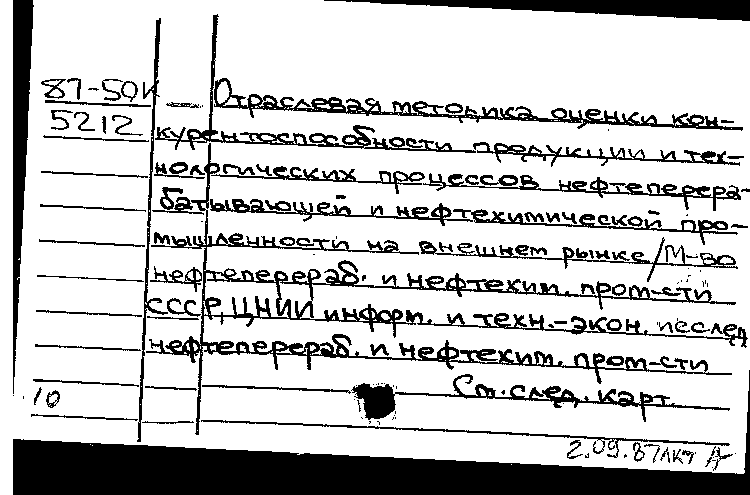 87-50К — Отраслевая методика оценки кон-
5212 курентоспособности продукции и тех-
нологических процессов нефтеперера-
батывающей и нефтехимической про-
мышленности на внешнем рынке / М-во
нефтеперераб. и нефтехим. пром-сти
СССР, ЦНИИ информ. и техн.-экон. исслед.
нефтеперераб. и нефтехим. пром-сти
См. след. карт.
10
2.09.87